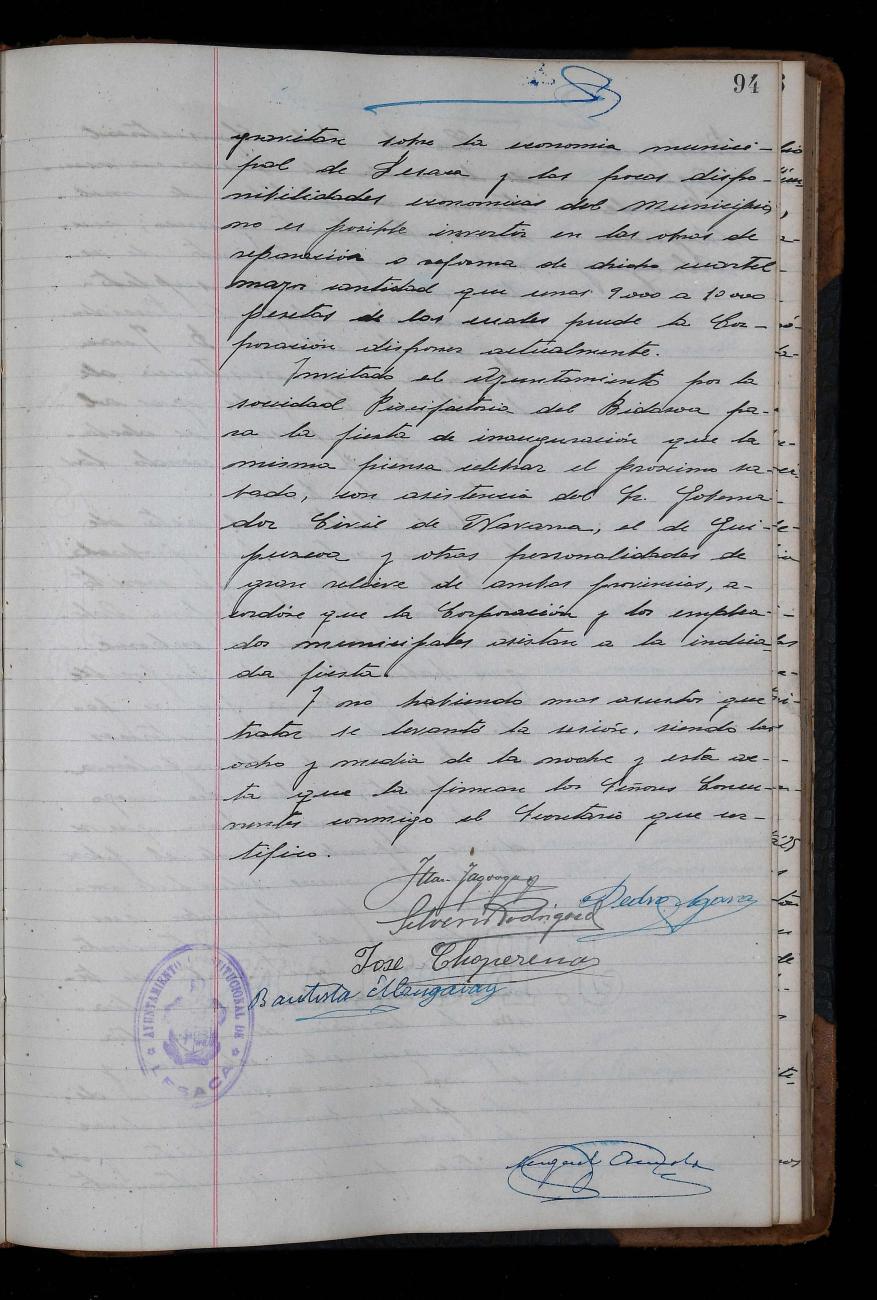 94
gravitan sobre la economia munici-
pal de Lesaca y las pocas dispo-
nibilidades economicas del Municipio,
no es posible invertir en las obras de
reparación o reforma de dicho cuartel
mayor cantidad que unas 9000 a 10000
pesetas de las cuales puede la Cor-
poración disponer actualmente.
Invitado el Ayuntamiento por la
sociedad Piscifactoria del Bidasoa pa-
ra la fiesta de inauguración que la
misma piensa celebrar el proximo sa-
bado, con asistencia del Sr. Goberna-
dor Civil de Navarra, el de Gui-
puzcoa y otras personalidades de
gran relieve de ambas provincias, a-
cordóse que la Corporación y los emplea-
dos municipales asistan a la indica-
da fiesta.
Y no habiendo mas asuntos que
tratar se levantó la sesión, siendo las
ocho y media de la noche y esta ac-
ta que la firman los Señores Concu-
rrentes conmigo el Secretario que cer-
tifico.
Silverio Rodriguez
Pedro
Jose Choperena
Bautista
AYUNTAMIENTO CONSTITUCIONAL DE
LESACA